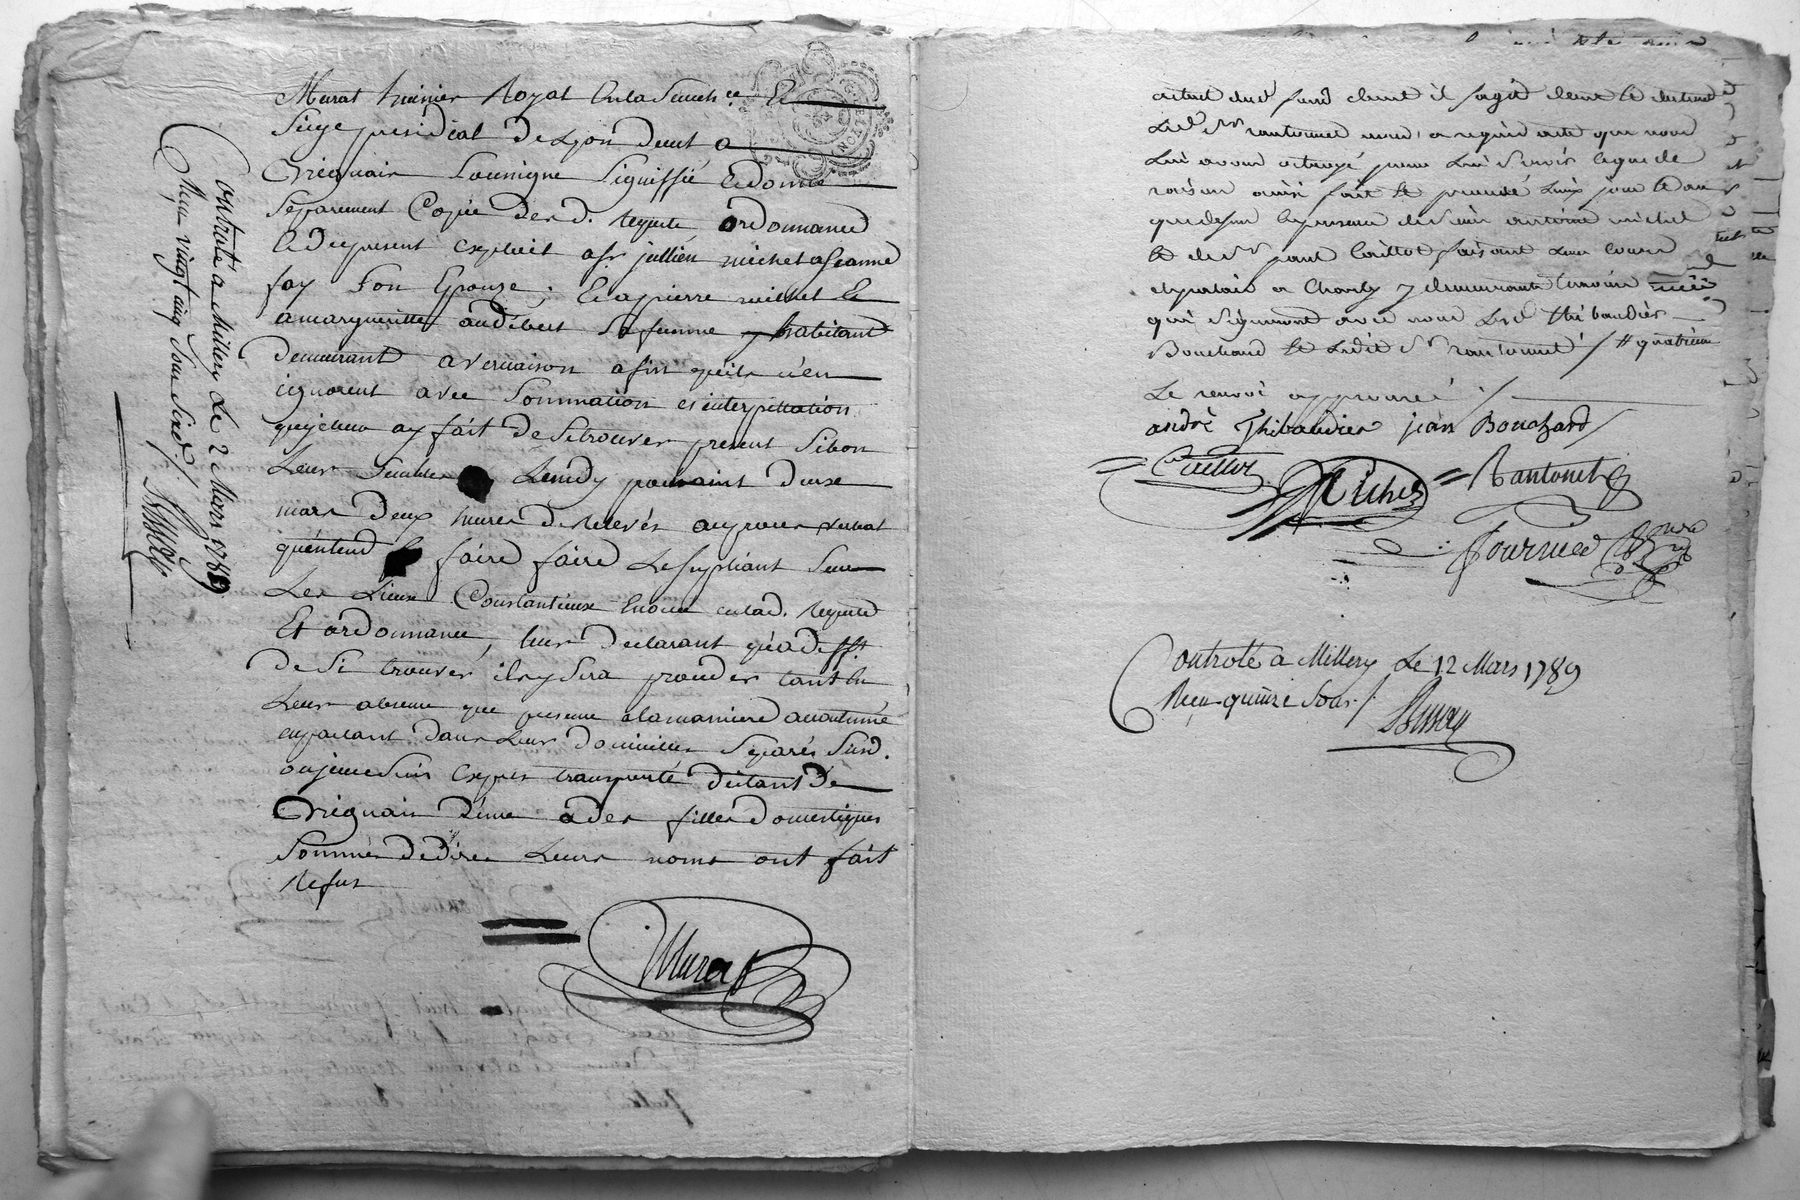 Murat huissier Royal en la Senech.ée Et
Siege presidial De Lyon Demt a
Orignais Soussigne Signiffié Et donné
Separement Copie des d. requete ordonnance
Et du present exploit a sr jullien michel a jeanne
fay Son Epouze; Et a pierre michel Et
a margueritte audibert Sa femme habitant
Demeurant a vernaison afin qu'ils n'en
ignorent avec Sommation et interpellation
que je leur ay fait De Se trouver present Si bon
Leur Semble Lundy prochain Douze
mars Deux heures De relevée au procès verbal
qu'entend faire faire Le Supliant Sur
Les Lieux Contantieux Enoncé en lad. requete
Et ordonnance, leur Declarant qu'a deff.t
De Si trouver il y Sera proceder tant en
Leur absence que presence a la maniere accoutumé
en parlant Dans Leur Domiciles Separés Susd.
ou je me Suis Exprès transporté distant De
Orignais D'une a des filles Domestiques
Sommés De Dire Leurs noms ont fait
Refus
Murat
Controté a Millery Le 2 Mars 1789
Reçu vingt cinq Sous Six d./.
actuel dud. fond dont il s'agit dont Et du tout
Led. Sr rantonnet nous a requis acte que nous
Lui avons octroyé pour Lui Servir ce que de
raison ainsi fait Et procedé Les jour Et an
que dessus en presence de Sieur antoine michel
Et de Sr
a Charly y demeurants
qui Signeront avec nous Lesd. thibaudier
Bouchard Et Ledit Sr rantonnet /. # quatrieme
Le renvoi approuvé /.
andré Thibaudier jean Bouchard
Caillot Michel Rantonet
Fournied
Controté a Millery Le 12 Mars 1789
Reçu quinze Sous /.